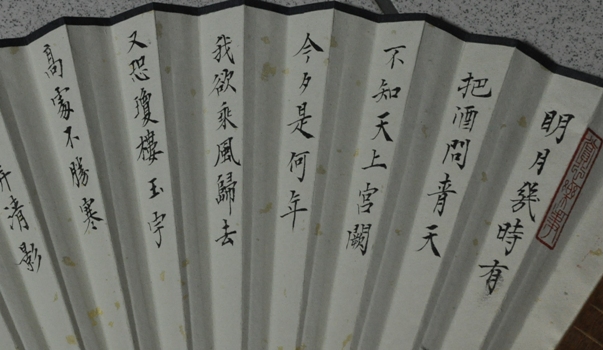 明月幾時有
把酒問青天
不知天上宮闕
今夕是何年
我欲乘風歸去
又恐瓊樓玉宇
高處不勝寒
弄清影